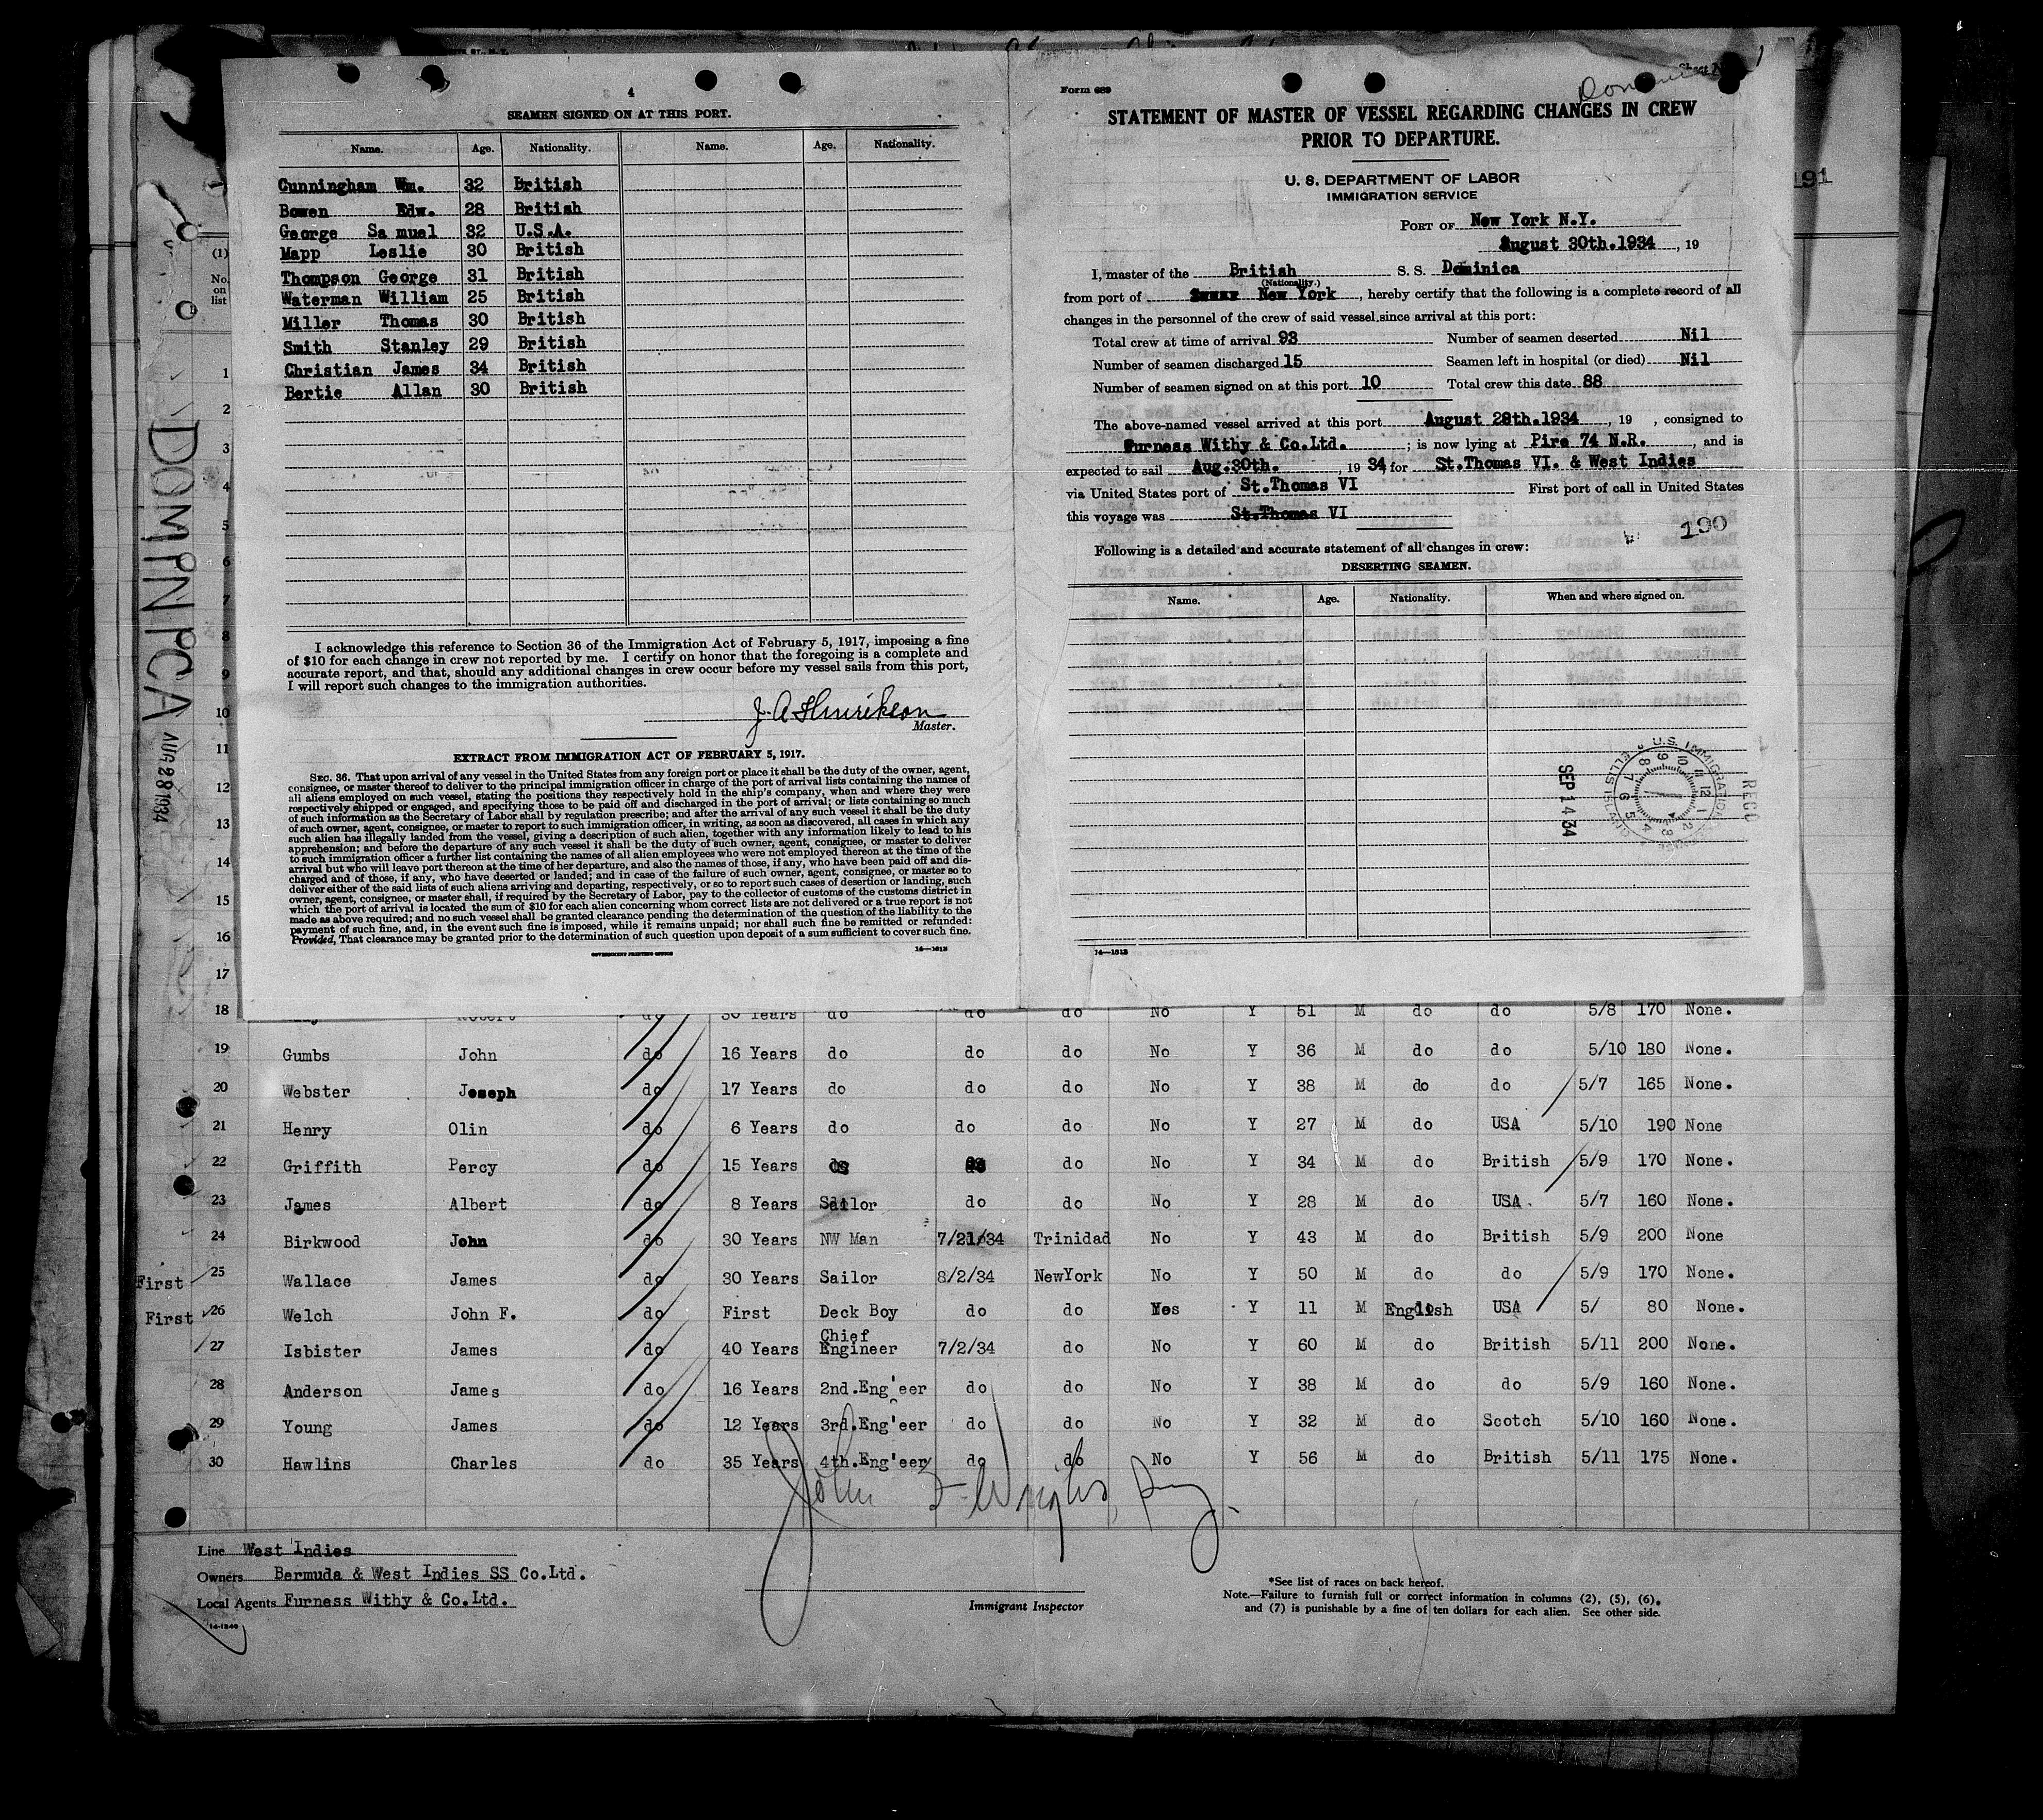 4
SEAMEN SIGNED ON AT THIS PORT.
Name. Age. Nationality. Name. Age. Nationality.
Cunningham Wm. 32 British
Bowen Edw. 28 British
George Samuel 32 U.S.A.
Mapp Leslie 30 British
Thompson George 31 British
Waterman William 25 British
Miller Thomas 30 British
Smith Stanley 29 British
Christian James 34 British
Bertie Allan 30 British
I acknowledge this reference to Section 36 of the Immigration Act of February 5, 1917, imposing a fine
of $10 for each change in crew not reported by me. I certify on honor that the foregoing is a complete and
accurate report, and that, should any additional changes in crew occur before my vessel sails from this port,
I will report such changes to the immigration authorities.
J. A. Hinrikson
Master.
EXTRACT FROM IMMIGRATION ACT OF FEBRUARY 5, 1917.
SEC. 36. That upon arrival of any vessel in the United States from any foreign port or place it shall be the duty of the owner, agent,
consignee, or master thereof to deliver to the principal immigration officer in charge of the port of arrival lists containing the names of
all aliens employed on such vessel, stating the positions they respectively hold in the ship's company, when and where they were
respectively shipped or engaged, and specifying those to be paid off and discharged in the port of arrival; or lists containing so much
of such information as the Secretary of Labor shall by regulation prescribe; and after the arrival of any such vessel it shall be the duty
of such owner, agent, consignee, or master to report to such immigration officer, in writing, as soon as discovered, all cases in which any
such alien has illegally landed from the vessel, giving a description of such alien, together with any information likely to lead to his
apprehension; and before the departure of any such vessel it shall be the duty of such owner, agent, consignee, or master to deliver
to such immigration officer a further list containing the names of all alien employees who were not employed thereon at the time of the
arrival but who will leave port thereon at the time of her departure, and also the names of those, if any, who have been paid off and dis-
charged and of those, if any, who have deserted or landed; and in case of the failure of such owner, agent, consignee, or master so to
deliver either of the said lists of such aliens arriving and departing, respectively, or so to report such cases of desertion or landing, such
owner, agent, consignee, or master shall, if required by the Secretary of Labor, pay to the collector of customs of the customs district in
which the port of arrival is located the sum of $10 for each alien concerning whom correct lists are not delivered or a true report is not
made as above required; and no such vessel shall be granted clearance pending the determination of the question of the liability to the
payment of such fine, and, in the event such fine is imposed, while it remains unpaid; nor shall such fine be remitted or refunded:
Provided, That clearance may be granted prior to the determination of such question upon deposit of a sum sufficient to cover such fine.
GOVERNMENT PRINTING OFFICE 14—1613
Form 689
STATEMENT OF MASTER OF VESSEL REGARDING CHANGES IN CREW
PRIOR TO DEPARTURE.
U. S. DEPARTMENT OF LABOR
IMMIGRATION SERVICE
PORT OF New York N.Y.
August 30th.1934, 19
I, master of the British S. S. Dominica
(Nationality.)
from port of New York, hereby certify that the following is a complete record of all
changes in the personnel of the crew of said vessel since arrival at this port:
Total crew at time of arrival 93 Number of seamen deserted Nil
Number of seamen discharged 15 Seamen left in hospital (or died) Nil
Number of seamen signed on at this port 10 Total crew this date 88
The above-named vessel arrived at this port August 28th.1934, 19 , consigned to
Furness Withy & Co.Ltd. ; is now lying at Pire 74 N.R. , and is
expected to sail Aug.30th. , 19 34 for St.Thomas VI. & West Indies
via United States port of St.Thomas VI First port of call in United States
this voyage was St.Thomas VI
190
Following is a detailed and accurate statement of all changes in crew:
DESERTING SEAMEN.
Name. Age. Nationality. When and where signed on.
RECD
U.S. IMMIGRATION
ELLIS ISLAND
SEP 14 34
14—1613
191
DOMINICA
AUG 28 1934
(1)
No.
on
list
1
2
3
4
5
6
7
8
9
10
11
12
13
14
15
16
17
18 Robert do 30 Years do do do No Y 51 M do do 5/8 170 None.
19 Gumbs John do 16 Years do do do No Y 36 M do do 5/10 180 None.
20 Webster Joseph do 17 Years do do do No Y 38 M do do 5/7 165 None.
21 Henry Olin do 6 Years do do do No Y 27 M do USA 5/10 190 None
22 Griffith Percy do 15 Years do do do No Y 34 M do British 5/9 170 None.
23 James Albert do 8 Years Sailor do do No Y 28 M do USA. 5/7 160 None.
24 Birkwood John do 30 Years NW Man 7/21/34 Trinidad No Y 43 M do British 5/9 200 None
First 25 Wallace James do 30 Years Sailor 8/2/34 NewYork No Y 50 M do do 5/9 170 None.
First 26 Welch John F. do First Deck Boy do do Yes Y 11 M English USA 5/ 80 None.
27 Isbister James do 40 Years Chief Engineer 7/2/34 do No Y 60 M do British 5/11 200 None.
28 Anderson James do 16 Years 2nd.Eng'eer do do No Y 38 M do do 5/9 160 None.
29 Young James do 12 Years 3rd.Eng'eer do do No Y 32 M do Scotch 5/10 160 None.
30 Hawlins Charles do 35 Years 4th.Eng'eer do do No Y 56 M do British 5/11 175 None.
Line West Indies
Owners Bermuda & West Indies SS Co.Ltd.
Local Agents Furness Withy & Co.Ltd.
14-1240
Immigrant Inspector
*See list of races on back hereof.
Note.—Failure to furnish full or correct information in columns (2), (5), (6),
and (7) is punishable by a fine of ten dollars for each alien. See other side.